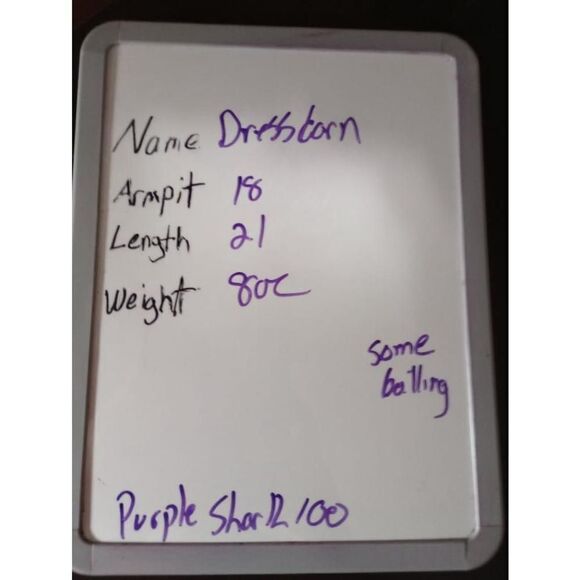 Name Dressbarn
Armpit 18
Length 21
Weight 8oz
some
balling
Purple Shark100